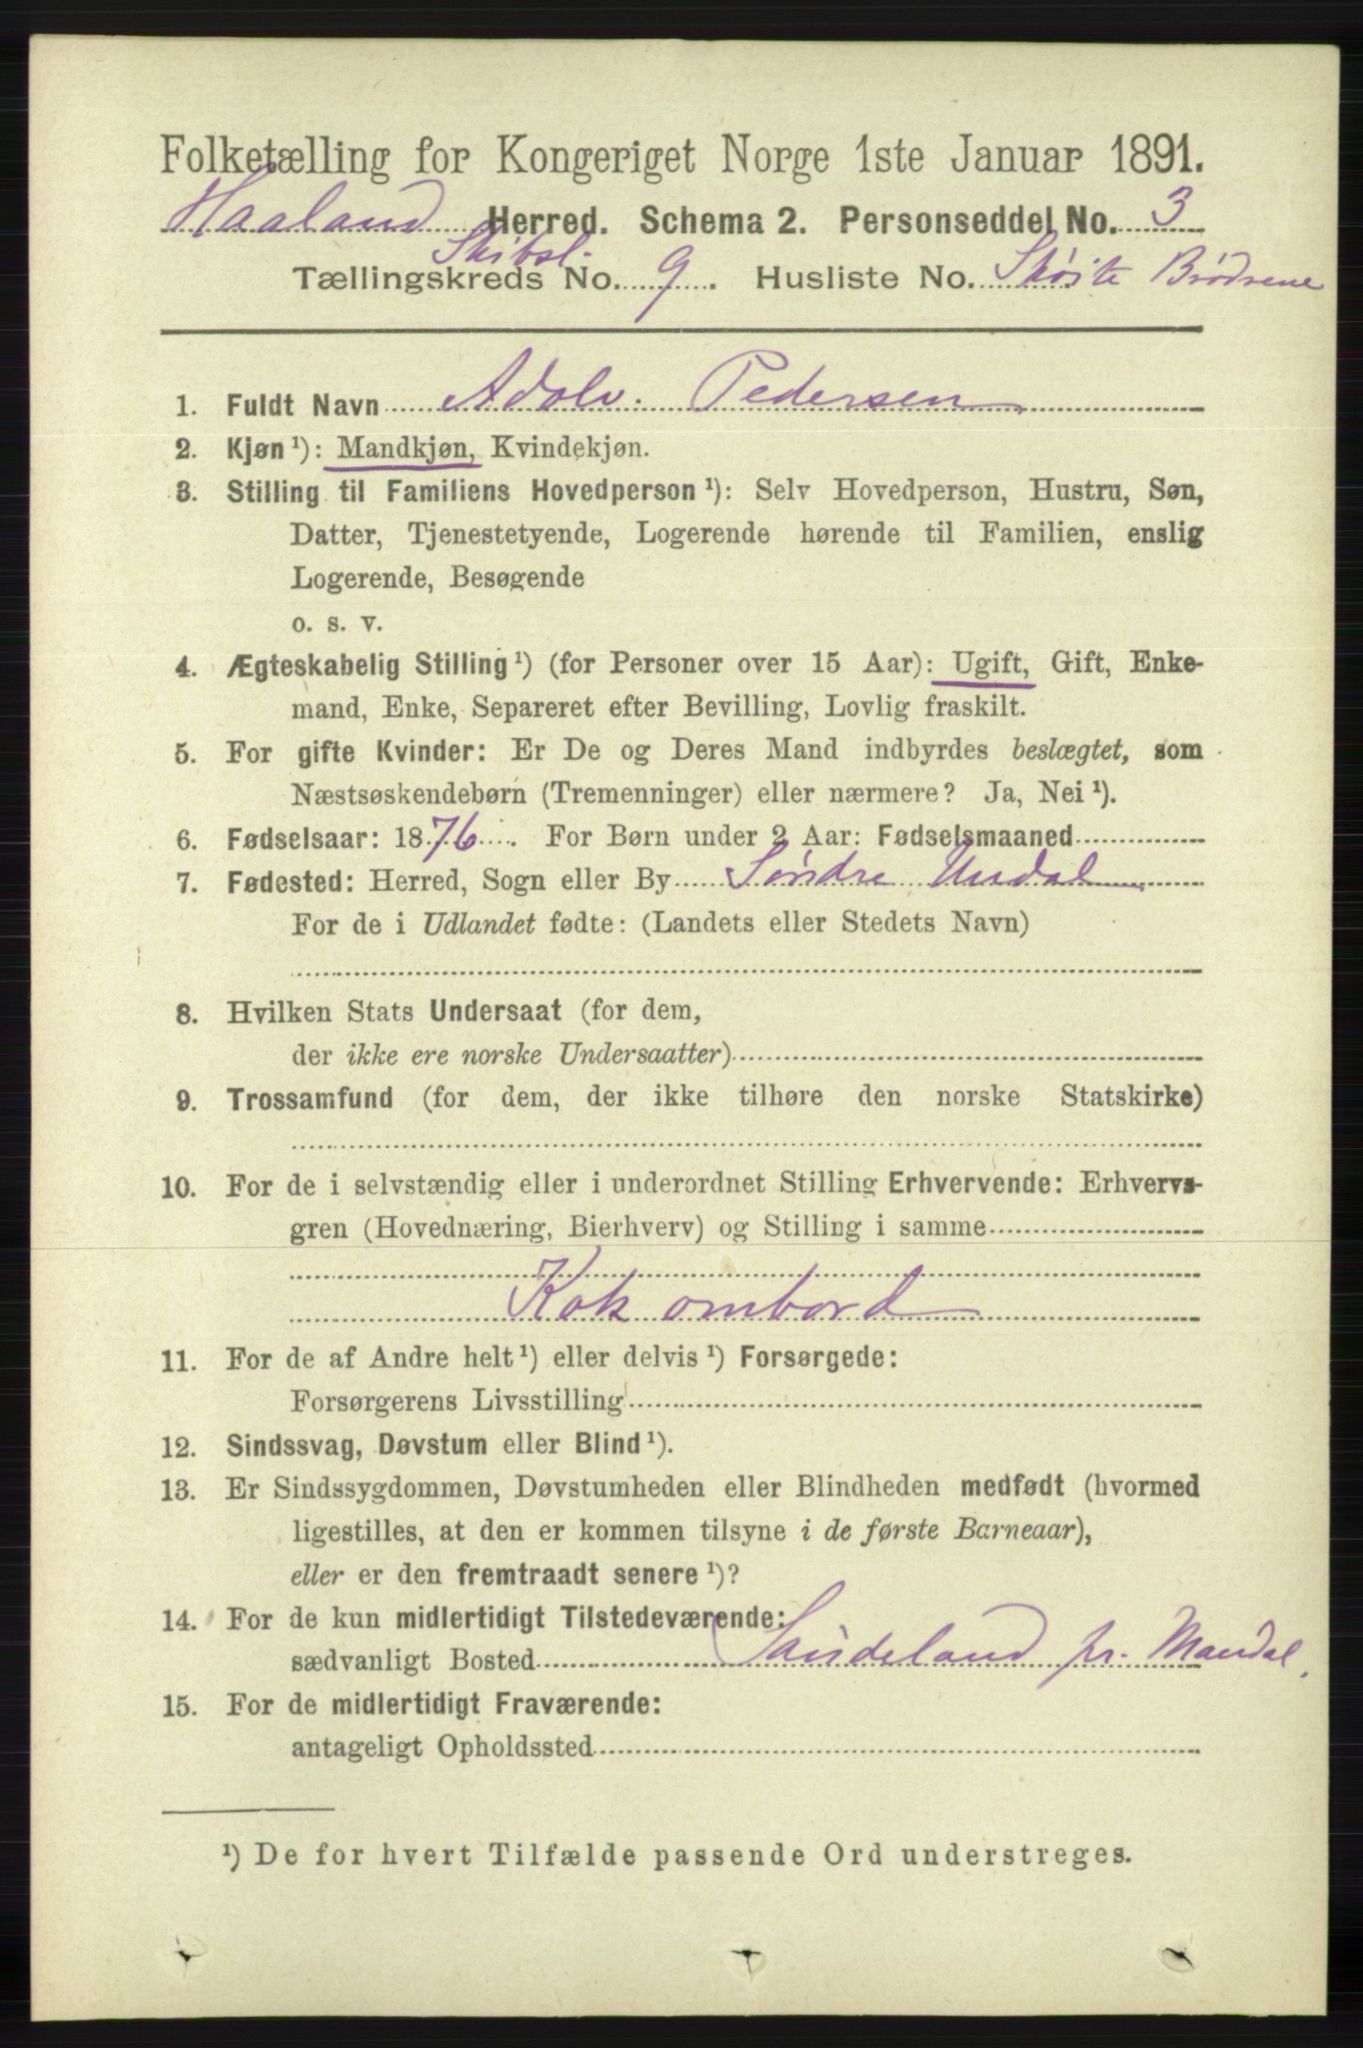 Folketælling for Kongeriget Norge 1ste Januar 1891.
Haaland Herred. Schema 2. Personseddel No. 3
Skibsl.
Tællingskreds No. 9. Husliste No. Skøite Brødrene
1. Fuldt Navn Adolv. Pedersen
2. Kjøn ¹): Mandkjøn, Kvindekjøn.
3. Stilling til Familiens Hovedperson ¹): Selv Hovedperson, Hustru, Søn,
Datter, Tjenestetyende, Logerende hørende til Familien, enslig
Logerende, Besøgende
o. s. v.
4. Ægteskabelig Stilling ¹) (for Personer over 15 Aar): Ugift, Gift, Enke-
mand, Enke, Separeret efter Bevilling, Lovlig fraskilt.
5. For gifte Kvinder: Er De og Deres Mand indbyrdes beslægtet, som
Næstsøskendebørn (Tremenninger) eller nærmere? Ja, Nei ¹).
6. Fødselsaar: 1876. For Børn under 2 Aar: Fødselsmaaned
7. Fødested: Herred, Sogn eller By Søndre Undal
For de i Udlandet fødte: (Landets eller Stedets Navn)
8. Hvilken Stats Undersaat (for dem,
der ikke ere norske Undersaatter)
9. Trossamfund (for dem, der ikke tilhøre den norske Statskirke)
10. For de i selvstændig eller i underordnet Stilling Erhvervende: Erhvervs-
gren (Hovednæring, Bierhverv) og Stilling i samme
Kok ombord
11. For de af Andre helt ¹) eller delvis ¹) Forsørgede:
Forsørgerens Livsstilling
12. Sindssvag, Døvstum eller Blind ¹).
13. Er Sindssygdommen, Døvstumheden eller Blindheden medfødt (hvormed
ligestilles, at den er kommen tilsyne i de første Barneaar),
eller er den fremtraadt senere ¹)?
14. For de kun midlertidigt Tilstedeværende:
sædvanligt Bosted Saudeland pr. Mandal.
15. For de midlertidigt Fraværende:
antageligt Opholdssted
¹) De for hvert Tilfælde passende Ord understreges.